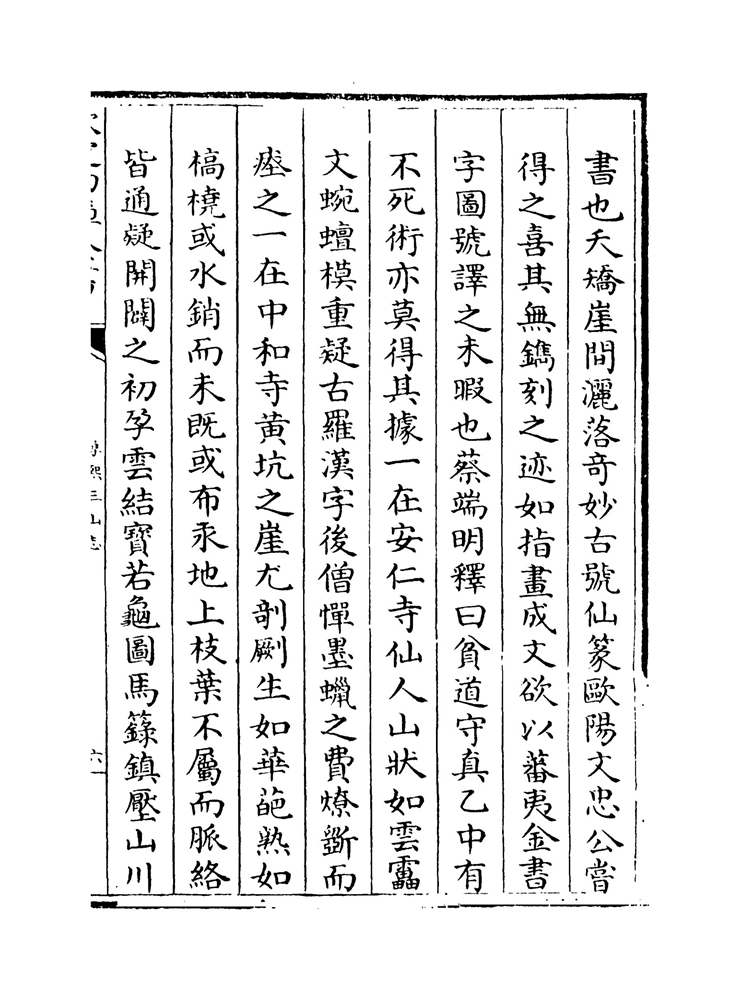 書也夭矯崖間灑落竒妙古號仙篆歐陽文忠公嘗
得之喜其無鐫刻之迹如指畫成文欲以蕃夷金書
字圖號譯之未暇也蔡端明釋曰貧道守真乙中有
不死術亦莫得其據一在安仁寺仙人山狀如雲靁
文蜿蟺模重疑古羅漢字後僧憚墨蠟之費燎斵而
瘞之一在中和寺黄坑之崖尤剖劂生如華葩熟如
槁橈或水銷而未既或布汞地上枝葉不屬而脈絡
皆通疑開闢之初孕雲結寳若龜圖馬籙鎮壓山川
淳熙三山志
六一